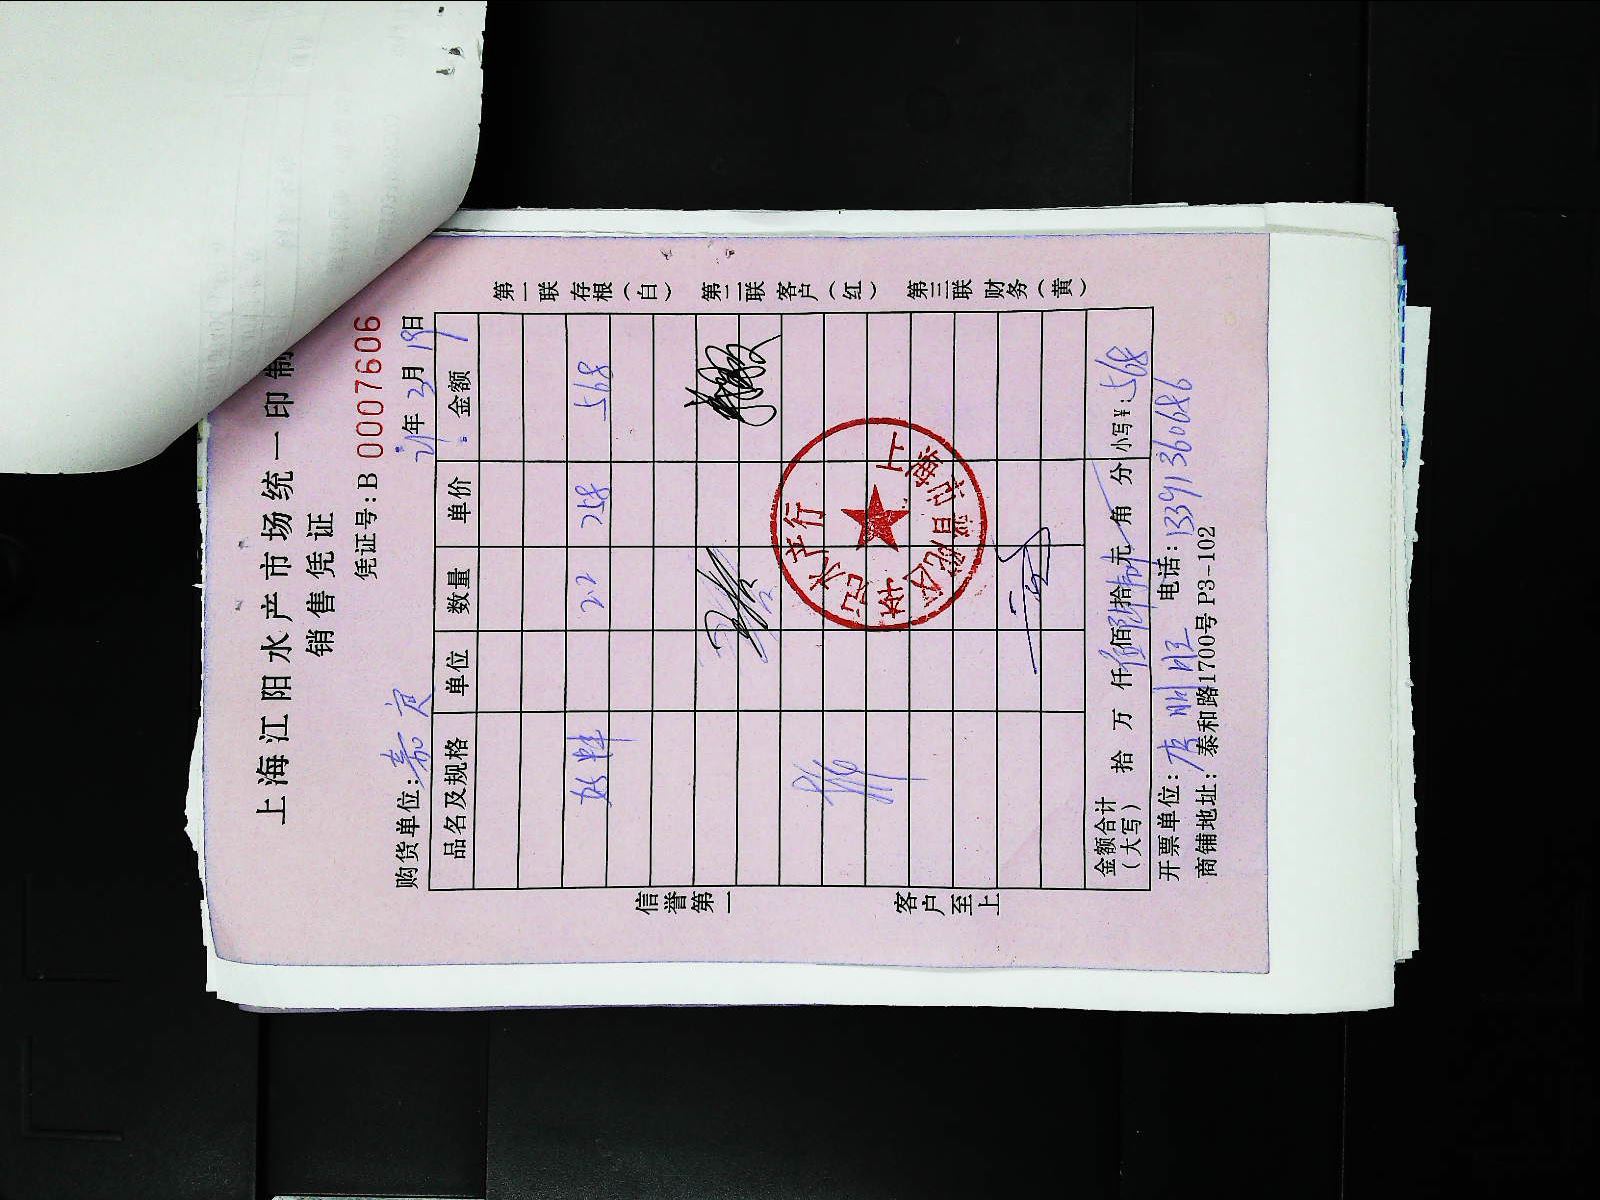 上海江阳水产市场统一印制
销售凭证
凭证号:B 0007606
购货单位:嘉定 21年3月19日
品名及规格 单位 数量 单价 金额
22 258 568
金额合计(大写) 拾 万 仟 佰 拾 元 角 分 小写¥:568
开票单位: 电话:13391360686
商铺地址:泰和路1700号P3-102
第一联 存根(白) 第二联 客户(红) 第三联 财务(黄)
信誉第一 客户至上
水产行
上海